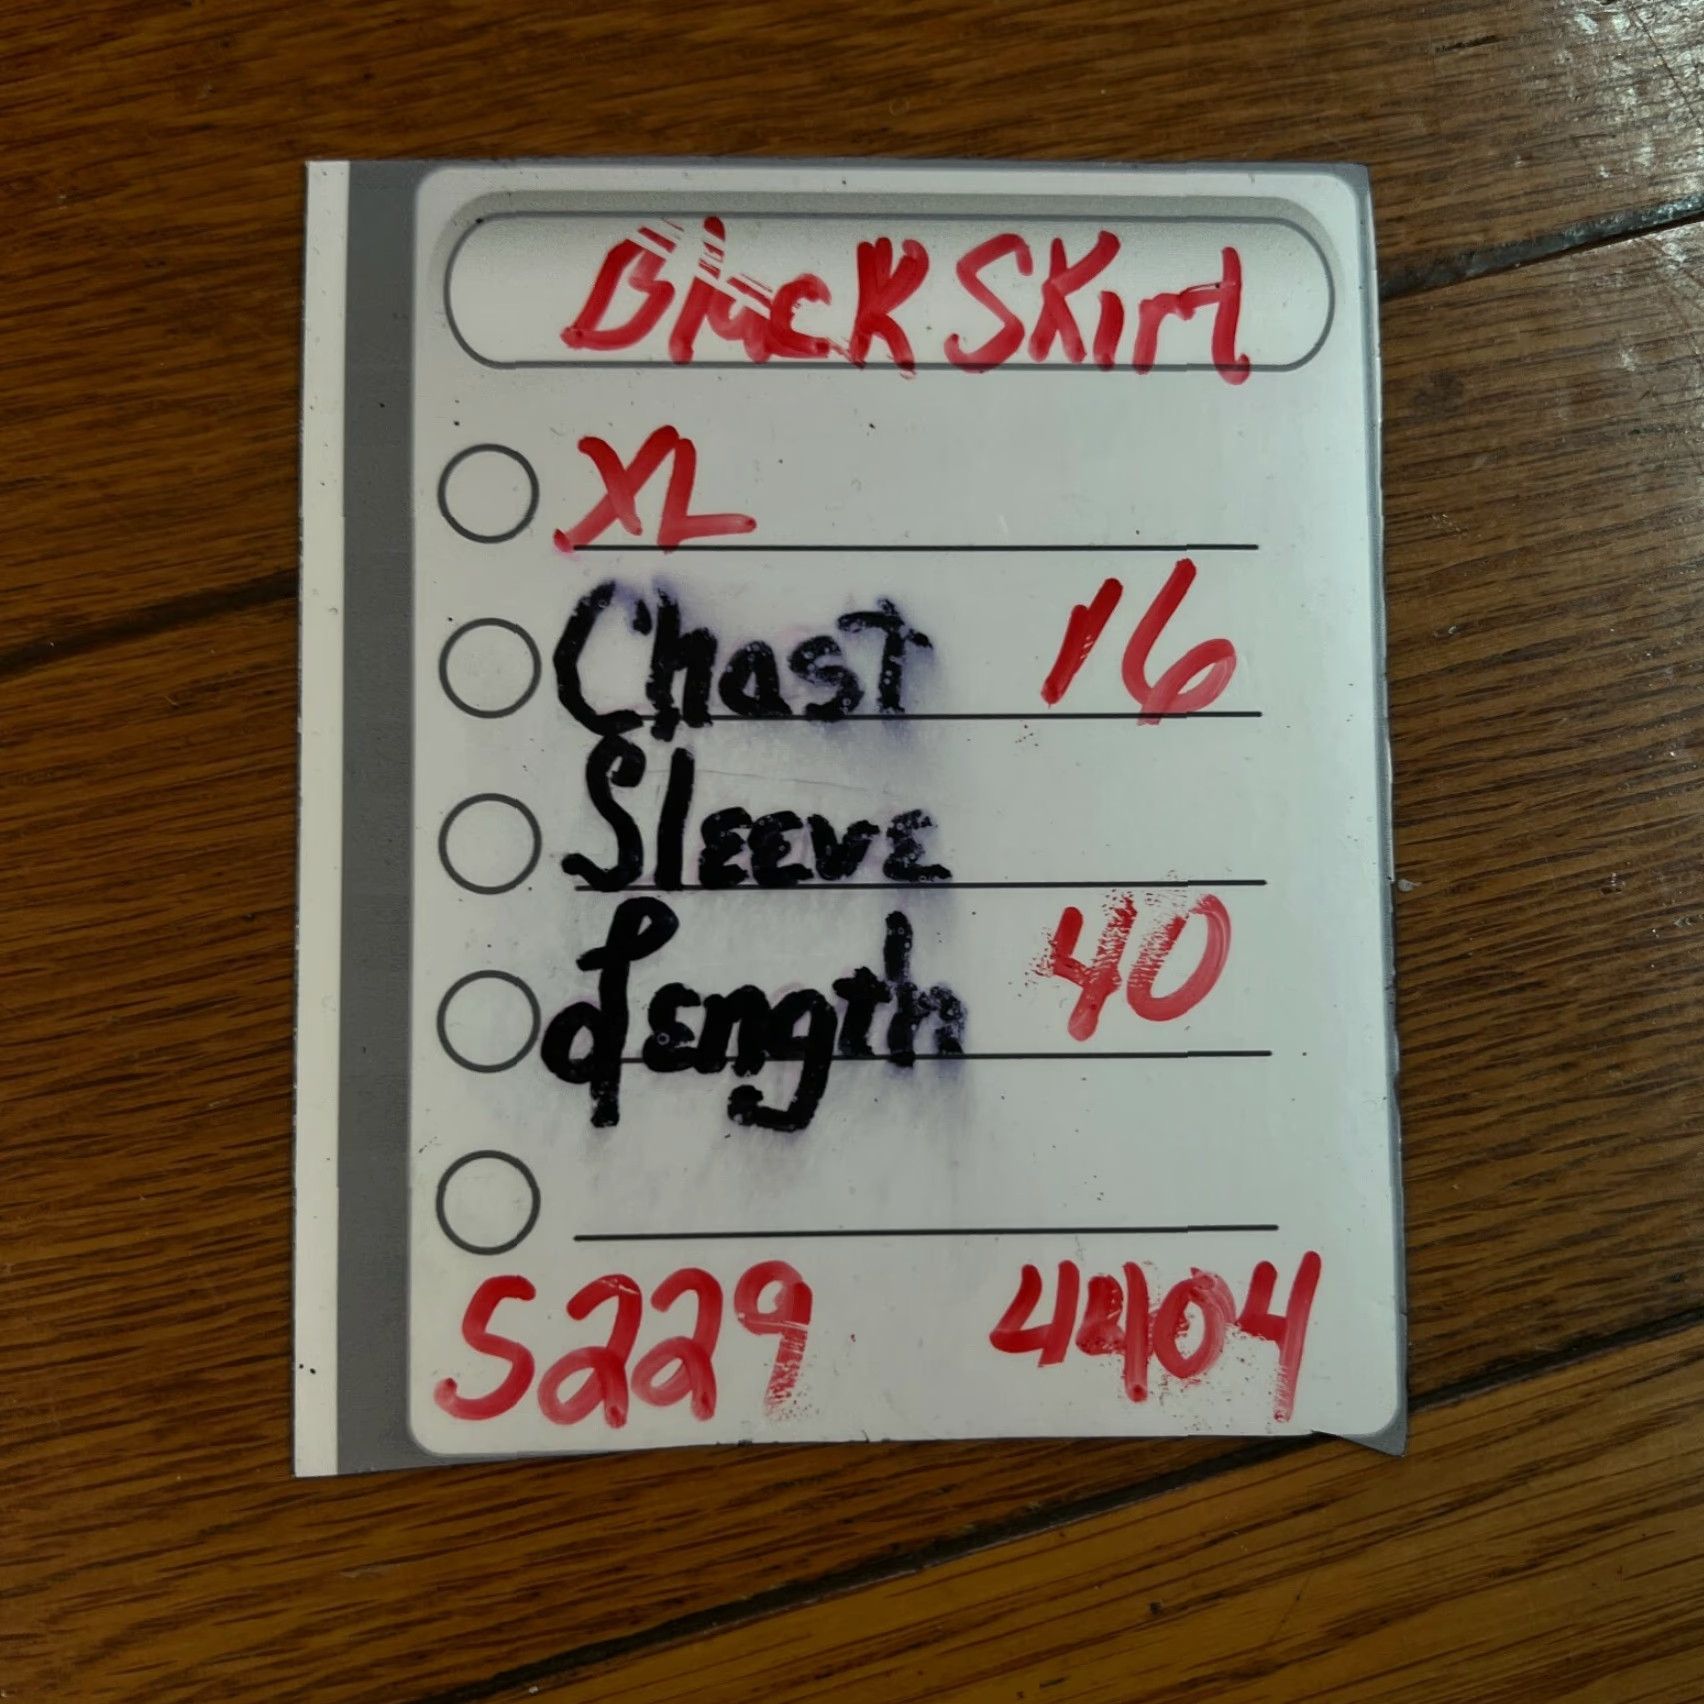 Black Skirt
XL
Chast 16
Sleeve
Length 40
S229 4404